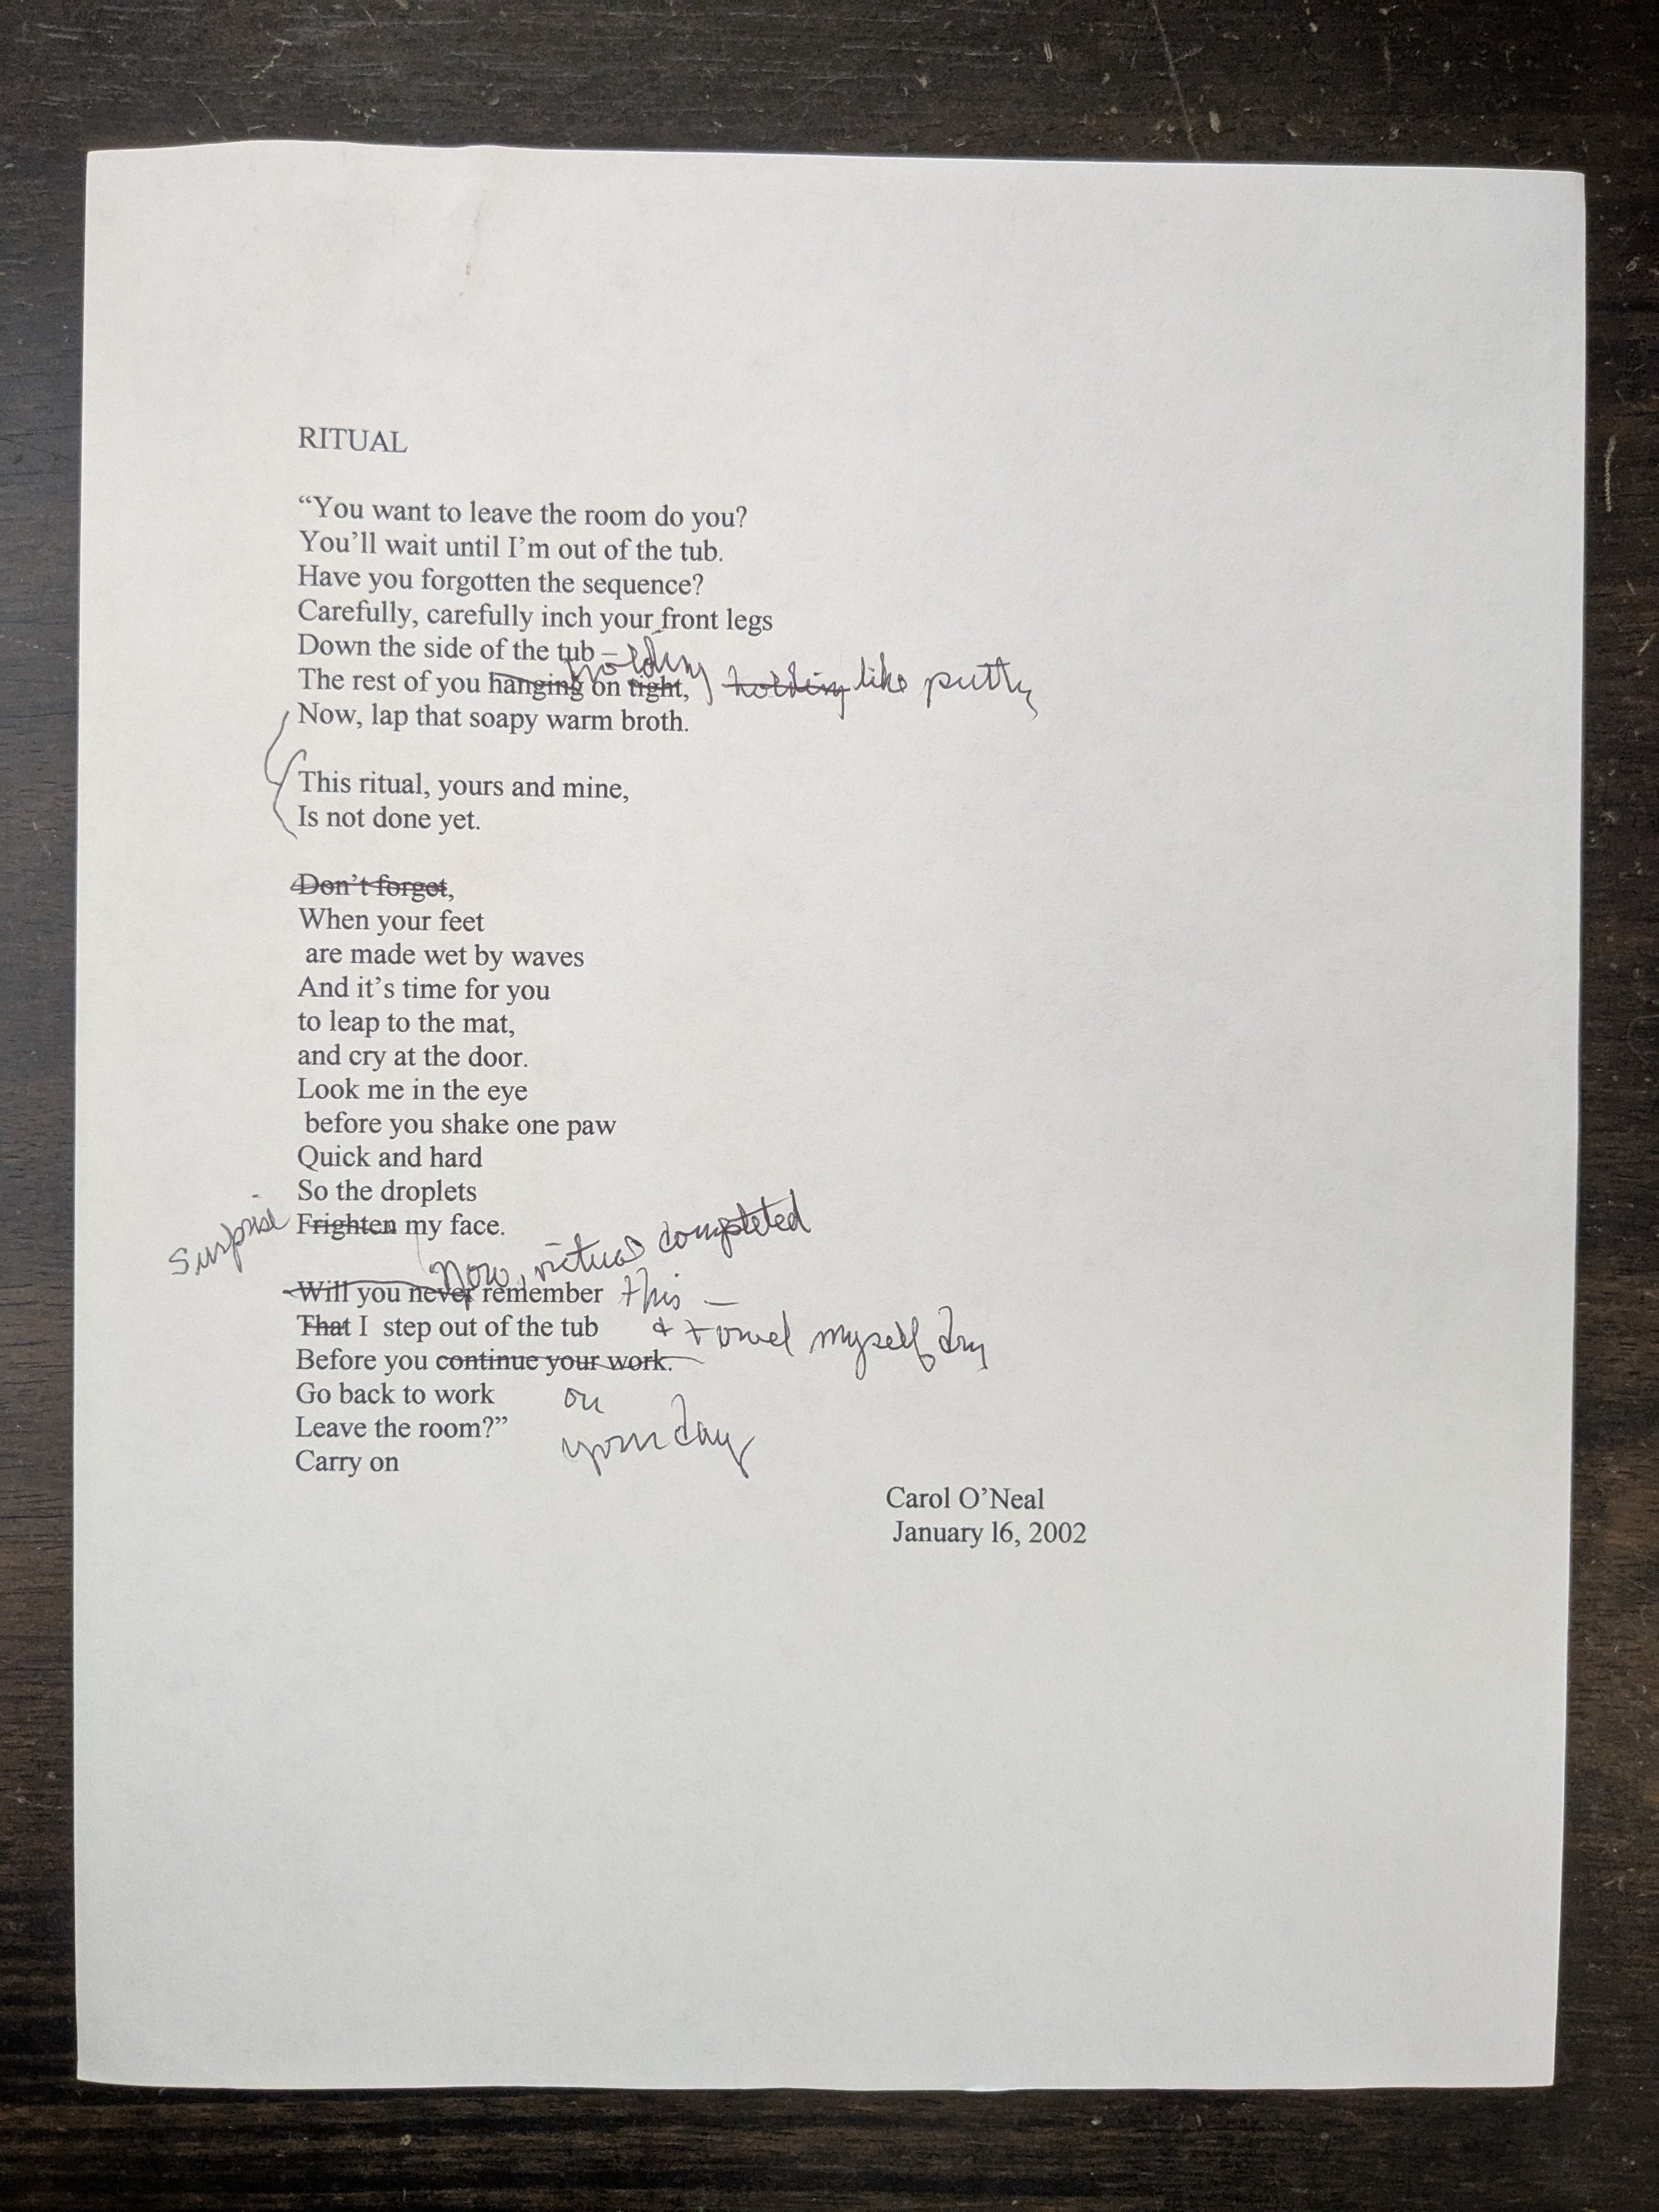 RITUAL
“You want to leave the room do you?
You’ll wait until I’m out of the tub.
Have you forgotten the sequence?
Carefully, carefully inch your front legs
Down the side of the tub –
holding
The rest of you hanging on tight, holding like putty
Now, lap that soapy warm broth.
This ritual, yours and mine,
Is not done yet.
Don’t forget,
When your feet
are made wet by waves
And it’s time for you
to leap to the mat,
and cry at the door.
Look me in the eye
before you shake one paw
Quick and hard
So the droplets
Surprise Frighten my face.
Now, ritual completed
Will you never remember this –
That I step out of the tub & towel myself dry
Before you continue your work.
Go back to work on
Leave the room?” your day
Carry on
Carol O’Neal
January l6, 2002